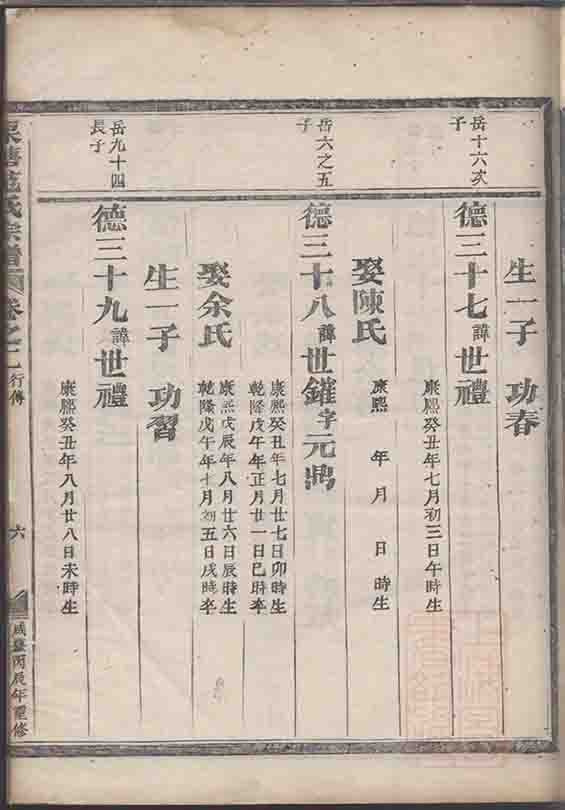 生一子 功春
岳十六次
子
德三十七諱世禮
康熙癸丑年七月初三日午時生
娶陳氏
康熙 年 月 日 時生
岳六之五
子
德三十八諱世鑵字元鼎
康熙癸丑年七月廿七日卯時生
乾隆戊午年正月廿一日巳時卒
娶余氏
康熙戊辰年八月廿六日辰時生
乾隆戊午年十月初五日戌時卒
生一子 功習
岳九十四
長子
德三十九諱世禮
康熙癸丑年八月廿八日未時生
氏宗譜 卷之二 行傳
六
咸豐丙辰年重修